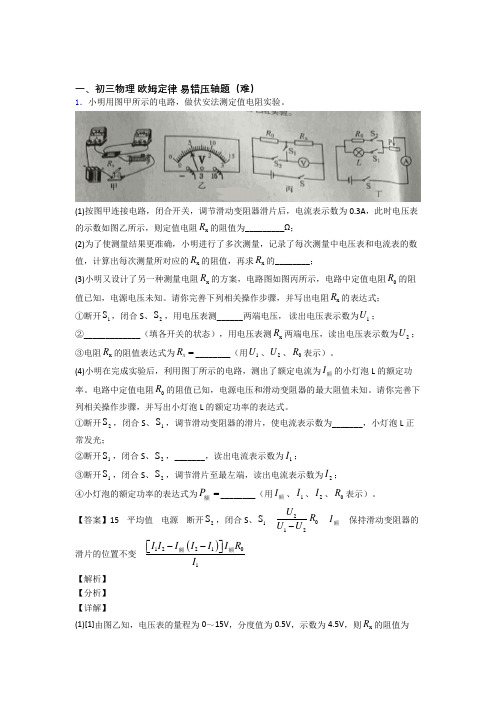 一、初三物理 欧姆定律 易错压轴题（难）
1．小明用图甲所示的电路，做伏安法测定值电阻实验。
甲 乙 丙 丁
(1)按图甲连接电路，闭合开关，调节滑动变阻器滑片后，电流表示数为 0.3A，此时电压表
的示数如图乙所示，则定值电阻 Rx 的阻值为_________Ω；
(2)为了使测量结果更准确，小明进行了多次测量，记录了每次测量中电压表和电流表的数
值，计算出每次测量所对应的 Rx 的阻值，再求 Rx 的________；
(3)小明又设计了另一种测量电阻 Rx 的方案，电路图如图丙所示，电路中定值电阻 R0 的阻
值已知，电源电压未知。请你完善下列相关操作步骤，并写出电阻 Rx 的表达式；
①断开 S1，闭合 S、S2，用电压表测______两端电压， 读出电压表示数为 U1；
②_____________（填各开关的状态），用电压表测 Rx 两端电压，读出电压表示数为 U2；
③电阻 Rx 的阻值表达式为 Rx＝________（用 U1、U2、R0 表示）。
(4)小明在完成实验后，利用图丁所示的电路，测出了额定电流为 I额 的小灯泡 L 的额定功
率。电路中定值电阻 R0 的阻值已知，电源电压和滑动变阻器的最大阻值未知。请你完善下
列相关操作步骤，并写出小灯泡 L 的额定功率的表达式。
①断开 S2，闭合 S、S1，调节滑动变阻器的滑片，使电流表示数为_______，小灯泡 L 正
常发光；
②断开 S1，闭合 S、S2，_______，读出电流表示数为 I1；
③断开 S1，闭合 S、S2，调节滑片至最左端，读出电流表示数为 I2；
④小灯泡的额定功率的表达式为 P额＝________（用 I额、I1、I2、R0 表示）。
【答案】15 平均值 电源 断开 S2，闭合 S、S1 U2/(U1−U2) R0 I额 保持滑动变阻器的
滑片的位置不变 [I1I2−I额(I2−I1)]I额R0/I1
【解析】
【分析】
【详解】
(1)[1]由图乙知，电压表的量程为 0～15V，分度值为 0.5V，示数为 4.5V，则 Rx 的阻值为